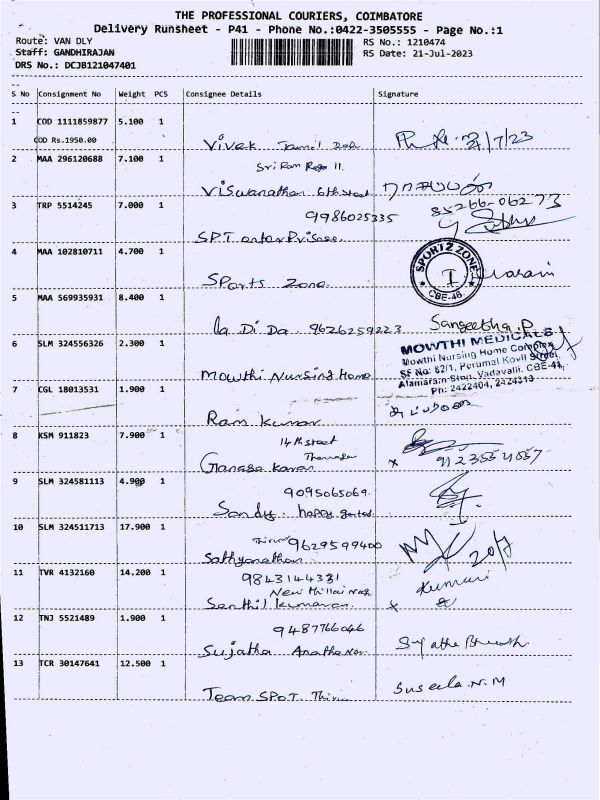 THE PROFESSIONAL COURIERS, COIMBATORE
Delivery Runsheet - P41 - Phone No.:0422-3505555 - Page No.:1
Route: VAN DLY
RS No.: 1210474
Staff: GANDHIRAJAN
RS Date: 21-Jul-2023
DRS No.: DCJB121047401
S No Consignment No Weight PCS Consignee Details Signature
1 COD 1111859877 5.100 1
COD Rs.1950.00
Vivek Tamil
/7/23
2 MAA 296120688 7.100 1
Sri Ram
Viswanathan 6th street
3 TRP 5514245 7.000 1
9986025335
85266-06273
SPT enterPrises
4 MAA 102810711 4.700 1
SPORTZ ZONE
CBE-46
SPorts Zone
5 MAA 569935931 8.400 1
La Di Da 9626259223
Sangeetha.P
6 SLM 324556326 2.300 1
MOWTHI MEDICALS
Mowthi Nursing Home Complex
SF No: 82/1, Perumal Kovil Street
Vadavalli, CBE-41,
Ph: 2422404, 2424313
Mowthi Nursing Home
7 CGL 18013531 1.900 1
Ram Kumar
8 KSM 911823 7.900 1
14th street
Ganasa Karan
9 SLM 324581113 4.900 1
9095065069
Sandy happy
10 SLM 324511713 17.900 1
9629599400
Sathyanathan
20/7
11 TVR 4132160 14.200 1
9843144331
New
Senthil Kumaran
Kumari
12 TNJ 5521489 1.900 1
9487766046
Sujatha
13 TCR 30147641 12.500 1
Team SPOT
Suseela.N.M